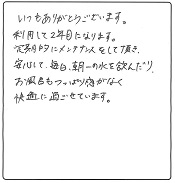 いつもありがとうございます。
利用して2年目になります。
定期的にメンテナンスをして頂き、
安心して、毎日、朝一の水を飲んだり、
お風呂もつっぱり感がなく
快適に過ごせています。